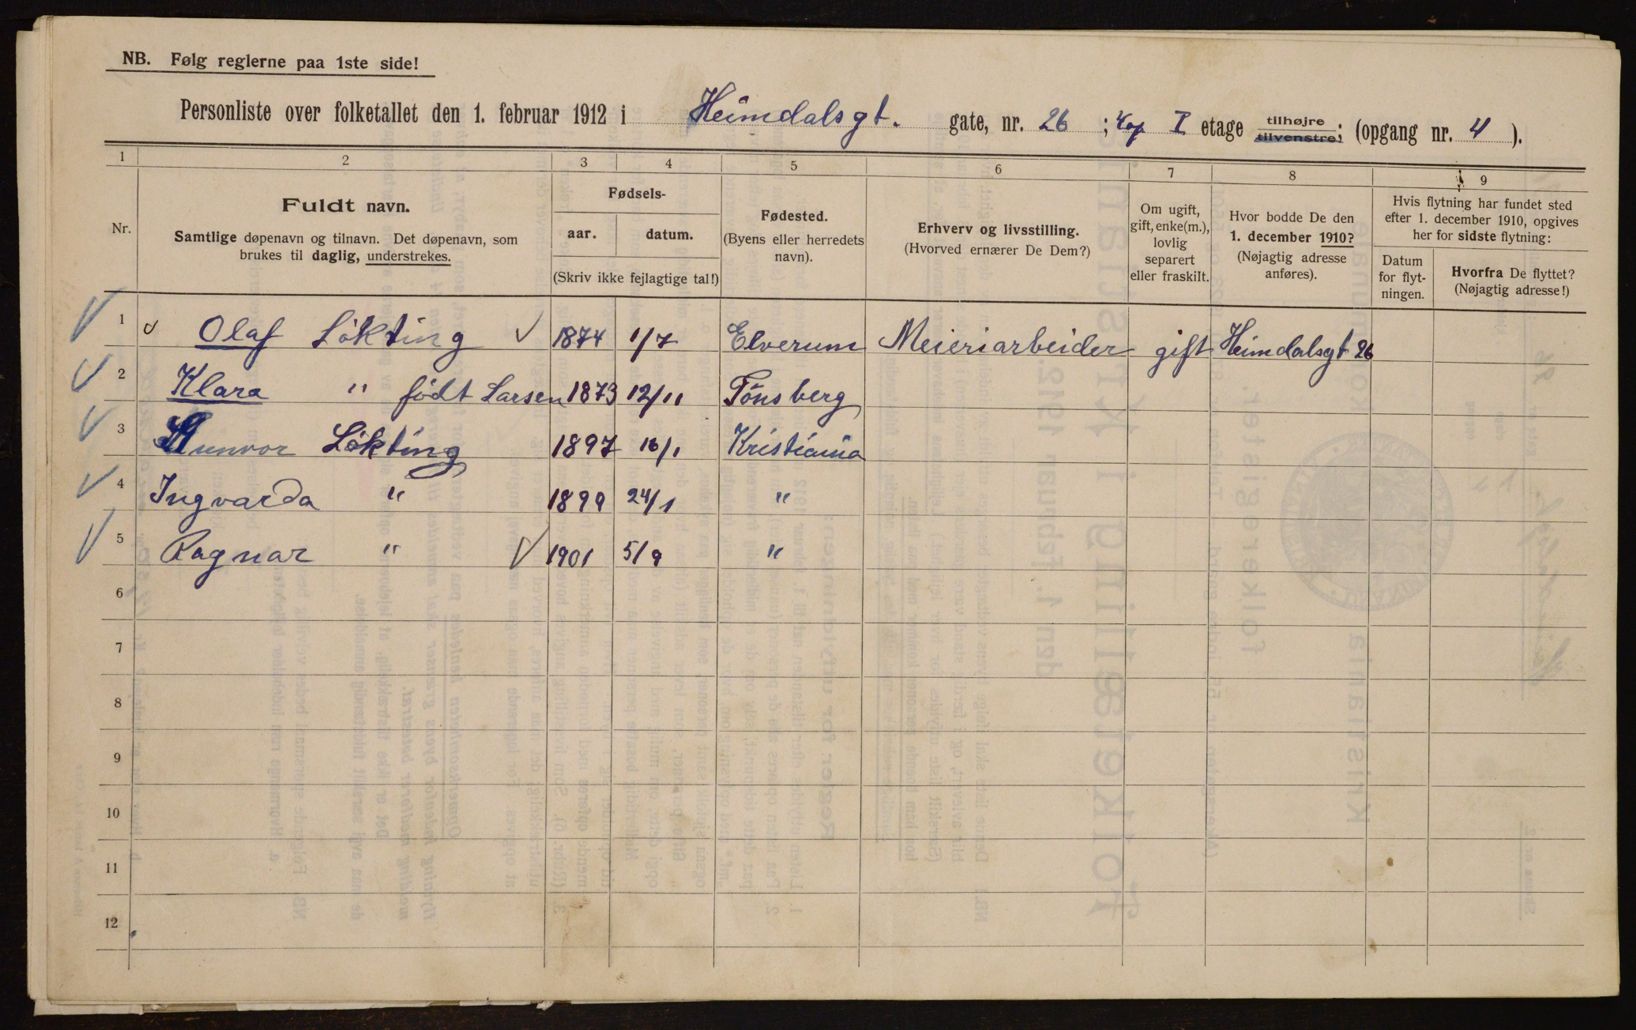 NB. Følg reglerne paa 1ste side!
Personliste over folketallet den 1. februar 1912 i Heimdalsgt. gate, nr. 26 ; I etage tilhøjre tilvenstre; (opgang nr. 4 ).
1 2 3 4 5 6 7 8 9
Nr.
Fuldt navn.
Samtlige døpenavn og tilnavn. Det døpenavn, som
brukes til daglig, understrekes.
Fødsels-
aar. datum.
(Skriv ikke fejlagtige tal!)
Fødested.
(Byens eller herredets
navn).
Erhverv og livsstilling.
(Hvorved ernærer De Dem?)
Om ugift,
gift, enke(m.),
lovlig
separert
eller fraskilt.
Hvor bodde De den
1. december 1910?
(Nøjagtig adresse
anføres).
Hvis flytning har fundet sted
efter 1. december 1910, opgives
her for sidste flytning:
Datum
for flyt-
ningen.
Hvorfra De flyttet?
(Nøjagtig adresse!)
1 Olaf Løkting 1874 1/7 Elverum Meieriarbeider gift Heimdalsgt 26
2 Klara " født Larsen 1873 12/11 Tönsberg
3 Gunvor Løkting 1897 16/1 Kristiania
4 Ingvarda " 1899 24/1 "
5 Ragnar " 1901 5/9 "
6
7
8
9
10
11
12